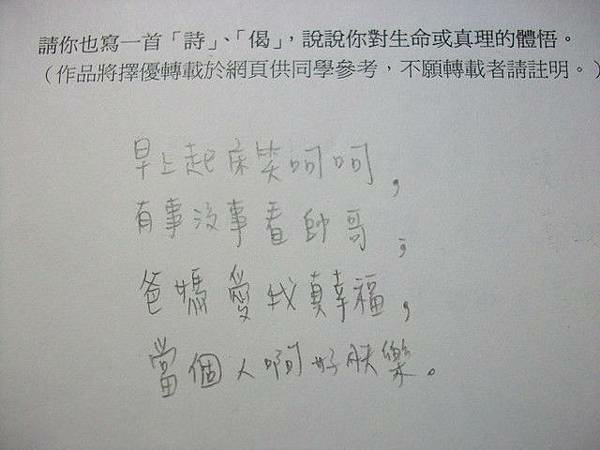 請你也寫一首「詩」、「偈」，說說你對生命或真理的體悟。
（作品將擇優轉載於網頁供同學參考，不願轉載者請註明。）
早上起床笑呵呵，
有事沒事看帥哥；
爸媽愛我真幸福，
當個人啊好快樂。